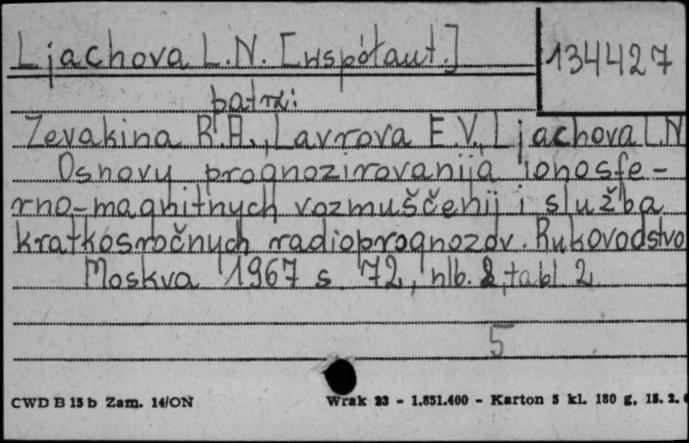 Ljachova L.N. [współaut.]
134427
patrz:
Zevakina R.A., Lavrova E.V., Ljachova L.N
Osnovy prognozirovanija ionosfe-
rno-magnitnych vozmuščenij i služba
kratkosročnych radioprognozov. Rukovodstvo
Moskva 1967 s 72, nlb. 2, tabl 2
5
CWD B 15 b Zam. 14/ON Wrak 23 - 1.851.400 - Karton 5 kl. 180 g, 15. 2. 6